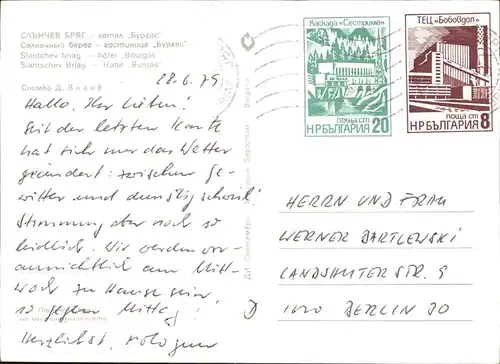 СЛЪНЧЕВ БРЯГ — хотел „Бургас"
Солнечный берег — гостиница „Бургас"
Slantchev briag — hôtel „Bourgas"
Slantschev Brjag — Hotel „Burgas"
Снимка Д. Влаев
28.6.79
Hallo, Ihr Lieben!
Seit der letzten Karte
hat sich nur das Wetter
geändert: zwischen Ge-
witter und dunstig schwül
Stimmung aber noch so
leidlich. Wir werden vor-
aussichtlich am Mitt-
woch zu Hause sein,
so gegen Mittag!
Herzlichst,
Каскада „Сестримо"
поща ст
НР БЪЛГАРИЯ 20
ТЕЦ „Бобовдол"
поща ст
НР БЪЛГАРИЯ 8
HERRN UND FRAU
WERNER BARTLEWSKI
LANDSHUTER STR. 9
D 1000 BERLIN 30